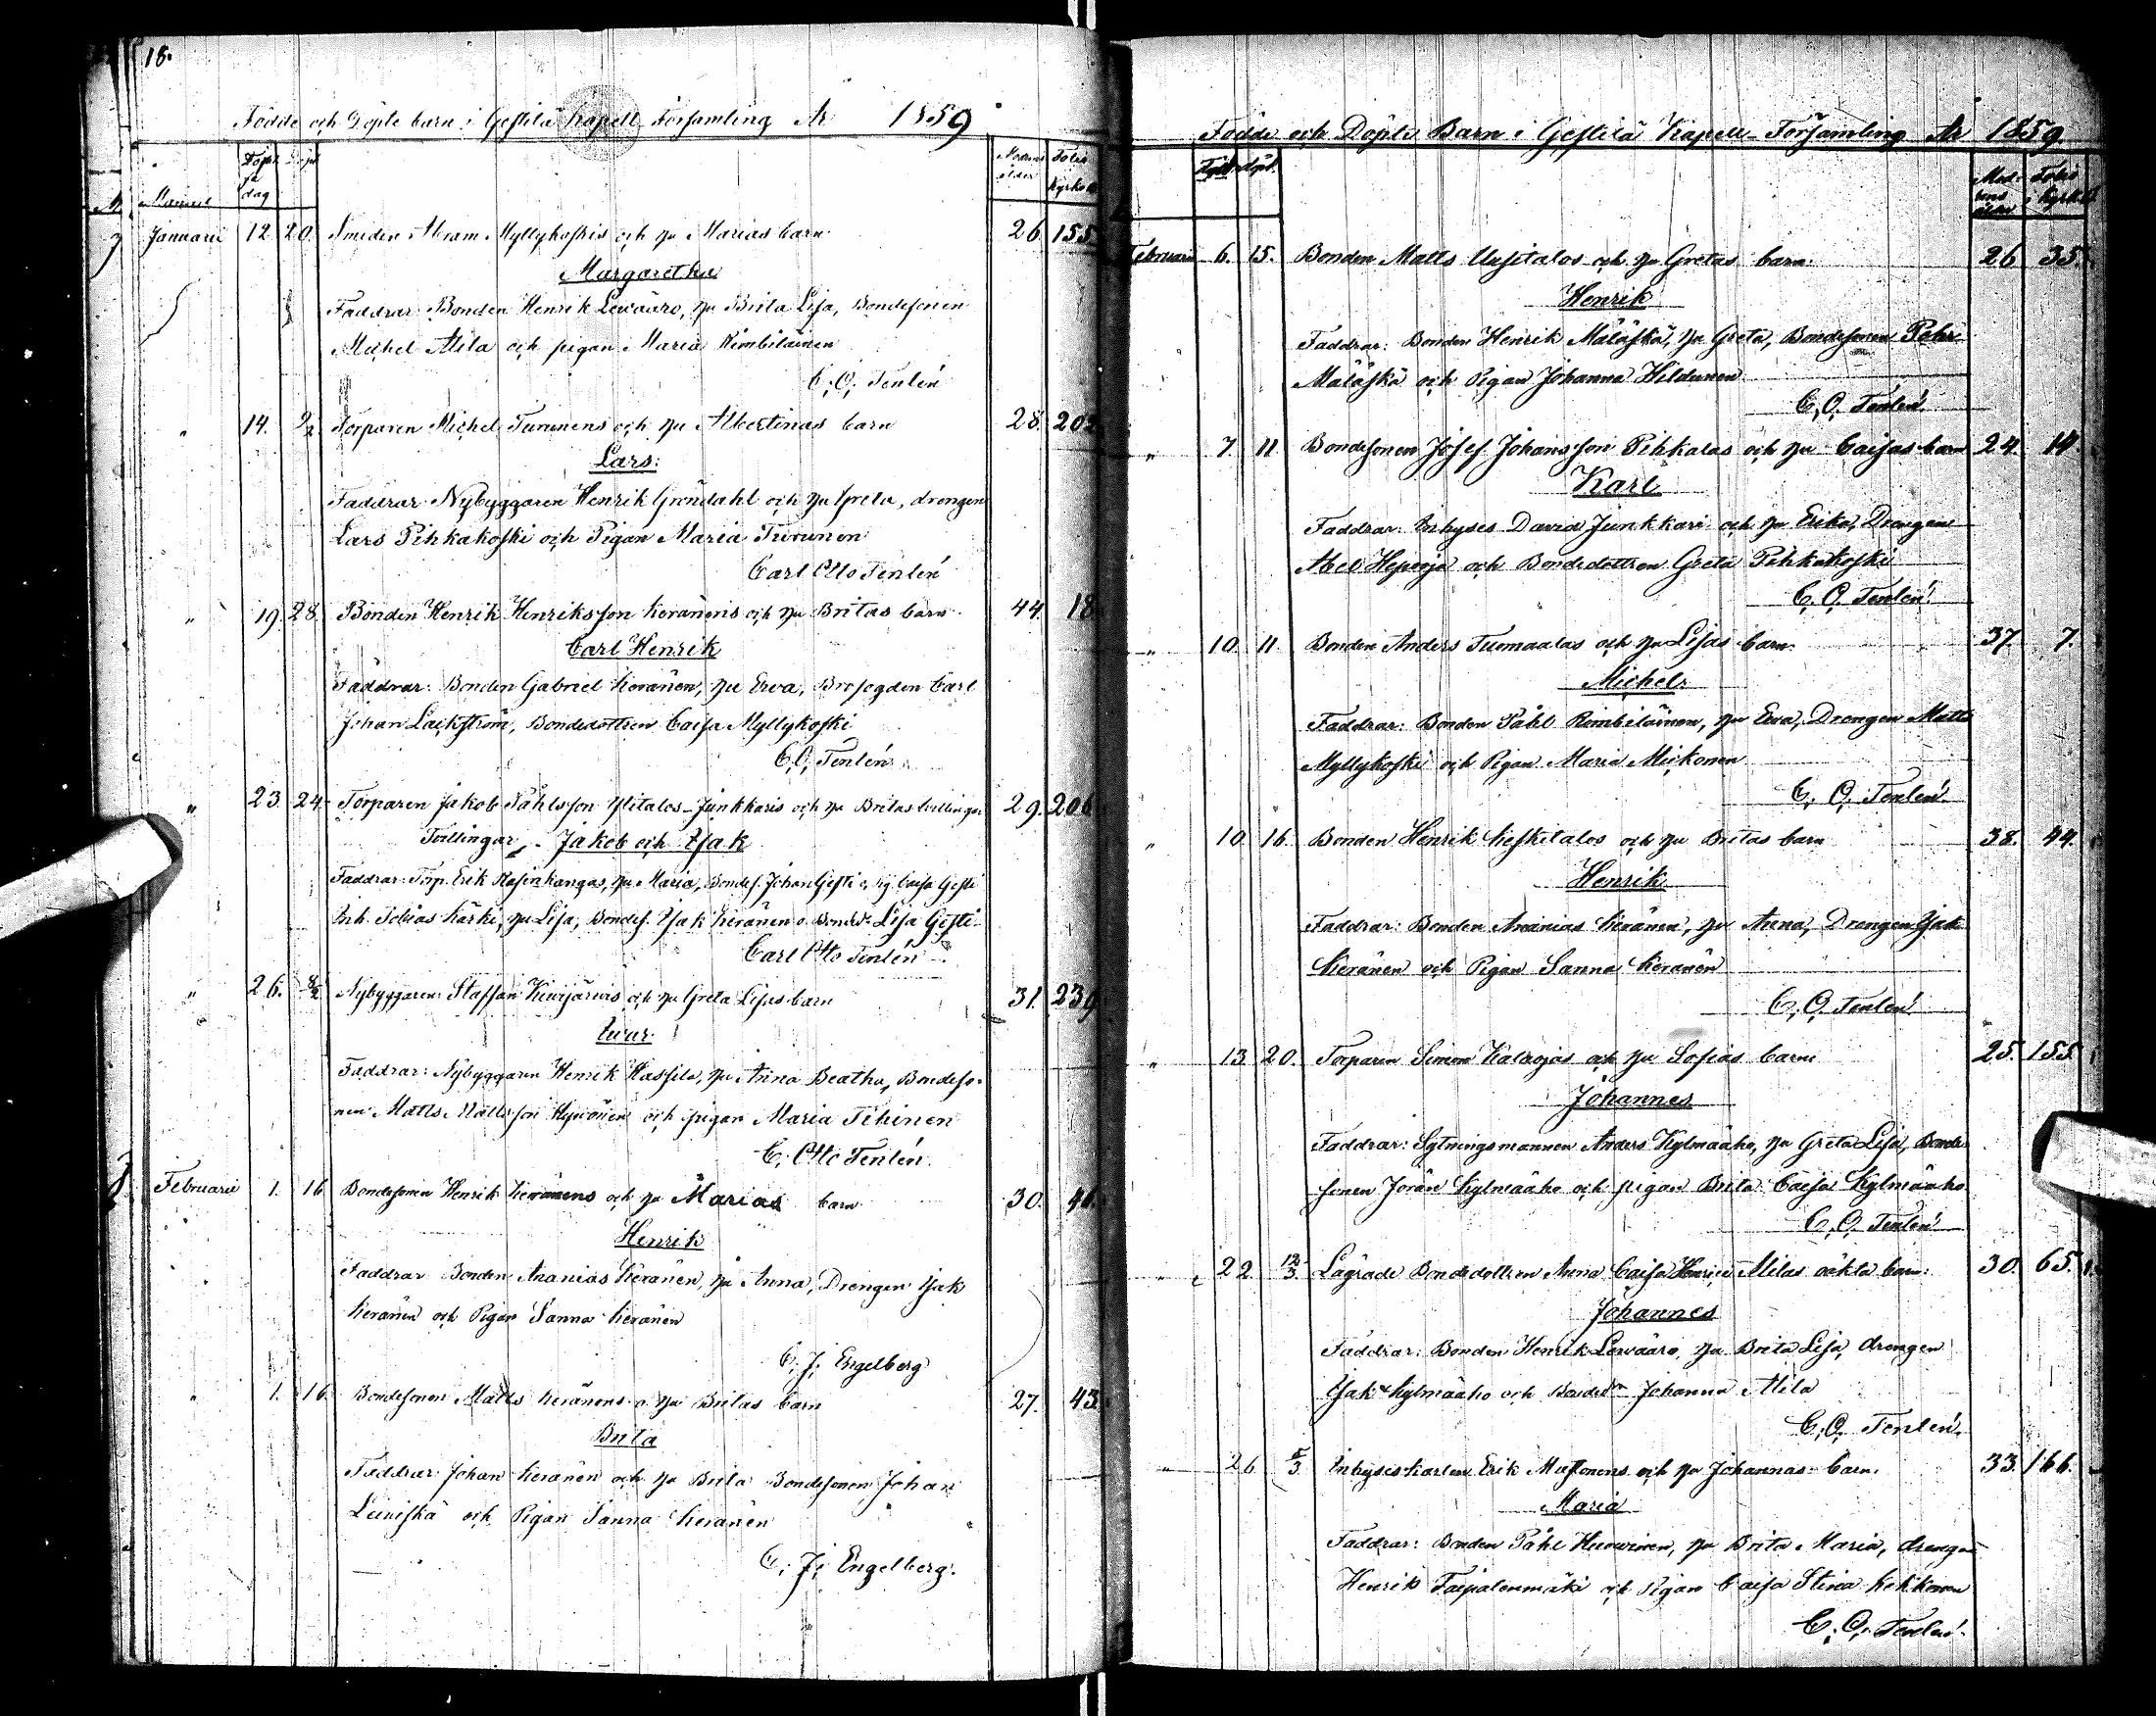 18.
Födde och Döpte barn i Gestilä Kapell Församling År 1859
Månad dag Moderns ålder Folio Kyrkob
Januarii 12 20. Smeden Abram Myllykoskis och hu Marias barn 26 155
Margaretha
Faddrar: Bonden Henrik Lewääro, hu Brita Lisa, Bondesonen
Michel Alila och pigan Maria Rimbiläinen
C. O. Tenlén
" 14. 2/2 Torparen Michel Turunens och hu Albertinas barn 28. 202
Lars:
Faddrar Nybyggaren Henrik Gröndahl och hu Greta, drengen
Lars Pihkakoski och Pigan Maria Turunen
Carl Otto Tenlén
" 19. 28. Bonden Henrik Henriksson Keränens och hu Britas barn 44. 18
Carl Henrik
Faddrar: Bonden Gabriel Keränen, hu Ewa, Carl
Johan Lackström, Bondedottren Caisa Myllykoski
C. O. Tenlén
" 23. 24. Torparen Jakob Påhlsson Ylitalos-Junkkaris och hu Britas tvillingar 29. 206
Tvillingar Jakob och Isak
Faddrar: Torp. Erik hu Maria, Bondes. Johan Gesti o. Caisa Gesti
Inh. Tobias Kärki, hu Lisa, Bondes. Isak Keränen o. Bondedr Lisa Gesti
Carl Otto Tenlén
" 26. 8/2 Nybyggaren Staffan Kiwijärwis och hu Greta Lisas barn 31. 239
Iwar
Faddrar: Nybyggaren Henrik Hassila, hu Anna Beatha, Bondeso-
nen Matts Mattsson Hyvönen och pigan Maria Tihinen
C. Otto Tenlén.
Februarii 1. 16 Bondesonen Henrik Keränens och hu Marias barn 30. 46.
Henrik
Faddrar Bonden Ananias Keränen, hu Anna, Drengen Isak
Keränen och Pigan Sanna Keränen
C. J. Engelberg
" 1. 16. Bondesonen Matts Keränens o. hu Britas barn 27. 43
Brita
Faddrar Johan Keränen och hu Brita Bondesonen Johan
Leiniskä och Pigan Sanna Keränen
C. J. Engelberg.
Födde och Döpte Barn i Gestilä Kapell-Församling År 1859.
Februarii 6. 15. Bonden Matts Uusitalos och hu Gretas barn. 26 35.
Henrik
Faddrar: Bonden Henrik Mäläskä, hu Greta, Bondesonen Pehr
Mäläskä och Pigan Johanna Hildunen
C. O. Tenlén.
" 7. 11 Bondesonen Josef Johansson Pihkalas och hu Caisas barn 24. 14.
Karl
Faddrar: Inhyses David Junkkari och hu Erika, Drengen
Abel Heporja och Bondedottren Greta Pihkakoski
C. O. Tenlén.
" 10. 11. Bonden Anders Tuomaalas och hu Lisas barn. 37. 7.
Michel.
Faddrar: Bonden Påhl Rimbiläinen, hu Ewa, Drengen Matts
Myllykoski och Pigan Maria Mickonen
C. O. Tenlén.
" 10. 16. Bonden Henrik Keskitalos och hu Britas barn 38. 44.
Henrik
Faddrar: Bonden Ananias Keränen, hu Anna, Drengen Isak
Keränen och Pigan Sanna Keränen
C. O. Tenlén.
" 13 20. Torparen Simon Kalaojas och hu Sofias barn 25. 155.
Johannes
Faddrar: Sytningsmannen Anders Kylmäaho, hu Greta Lisa, Bonde
sonen Jöran Kylmäaho och pigan Brita Caisa Kylmäaho
C. O. Tenlén
" 22. 13/3 Lägrade Bondedottren Anna Caisa Alilas oäkta barn. 30. 65.
Johannes
Faddrar: Bonden Henrik Lewääro, hu Brita Lisa, drengen
Isak Kylmäaho och Bondedr Johanna Alila
C. O. Tenlén.
" 26 5/3 Inhyseskarlen Erik Mustonens och hu Johannas barn. 33. 166.
Maria
Faddrar: Bonden Påhl Huowinen, hu Brita Maria, drengen
Henrik Taipalenmäki och Pigan Caisa Stina Kekkonen
C. O. Tenlén.